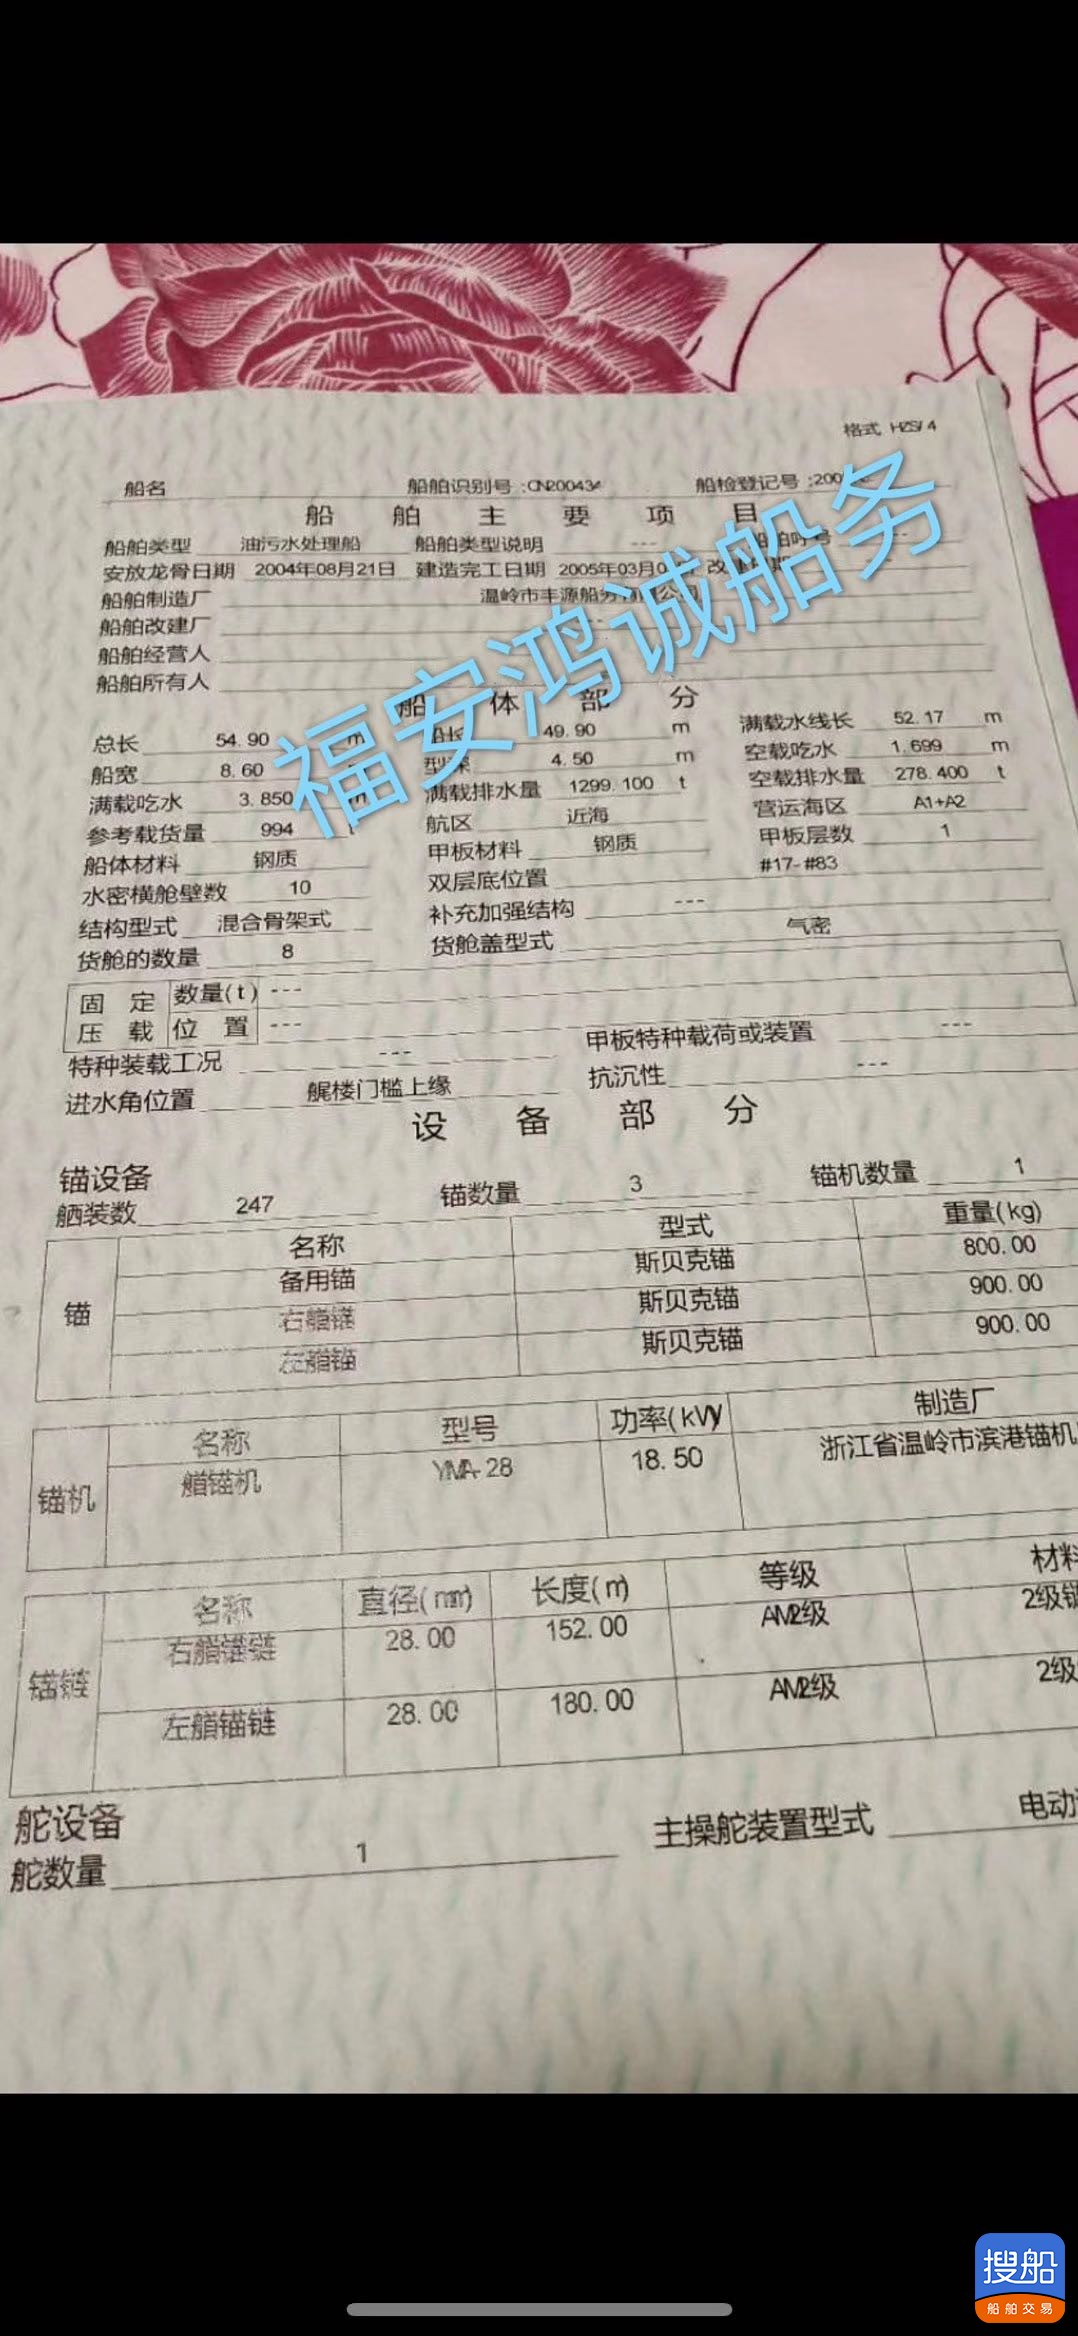 格式 HZS/4
船名 船舶识别号:CN200434 船检登记号:200
船舶主要项目
船舶类型 油污水处理船 船舶类型说明 --- 船舶呼号 ---
安放龙骨日期 2004年08月21日 建造完工日期 2005年03月0
船舶制造厂 温岭市丰源船务有限公司
船舶改建厂
船舶经营人
船舶所有人
船体部分
总长 54.90 m 船长 49.90 m 满载水线长 52.17 m
船宽 8.60 型深 4.50 m 空载吃水 1.699 m
满载吃水 3.850 m 满载排水量 1299.100 t 空载排水量 278.400 t
参考载货量 994 t 航区 近海 营运海区 A1+A2
船体材料 钢质 甲板材料 钢质 甲板层数 1
水密横舱壁数 10 双层底位置 #17-#83
结构型式 混合骨架式 补充加强结构 ---
货舱的数量 8 货舱盖型式 气密
固定压载 数量(t) ---
位置 ---
特种装载工况 --- 甲板特种载荷或装置 ---
进水角位置 艉楼门槛上缘 抗沉性 ---
设备部分
锚设备
舾装数 247 锚数量 3 锚机数量 1
锚 名称 型式 重量(kg)
备用锚 斯贝克锚 800.00
右艏锚 斯贝克锚 900.00
左艏锚 斯贝克锚 900.00
锚机 名称 型号 功率(kW) 制造厂
艏锚机 YMA-28 18.50 浙江省温岭市滨港锚机
锚链 名称 直径(mm) 长度(m) 等级 材料
右艏锚链 28.00 152.00 AM2级 2级
左艏锚链 28.00 180.00 AM2级 2级
舵设备
舵数量 1 主操舵装置型式 电动
福安鸿诚船务
搜船
船舶交易